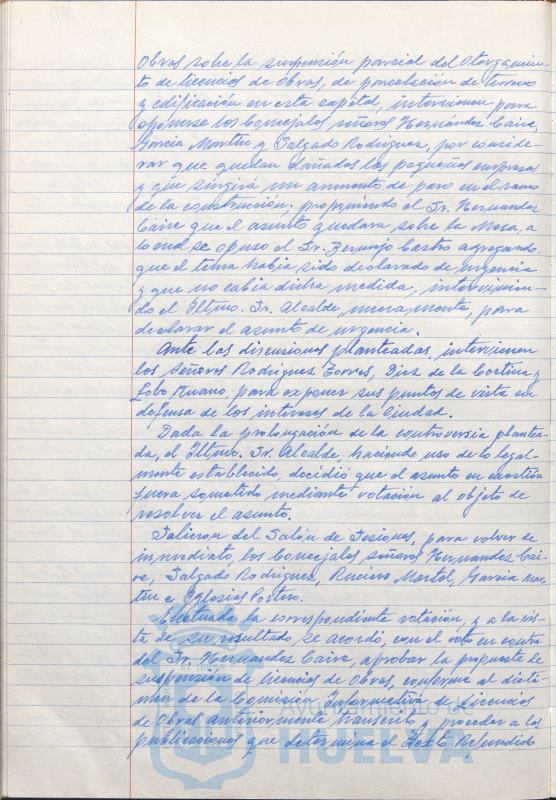 Obras sobre la suspensión parcial del otorgamien-
to de licencias de obras, de parcelación de terreno
y edificación en esta capital, intervienen para
oponerse los Concejales señores Hernández Caire,
García Martín y Salgado Rodríguez, por conside-
rar que quedan dañadas las pequeñas empresas
y que surgirá un aumento de paro en el ramo
de la construcción; proponiendo el Sr. Hernandez
Caire que el asunto quedara sobre la Mesa, a
lo cual se opuso el Sr. Bermejo Castro agregando,
que el tema había sido declarado de urgencia
y que no cabía dicha medida, intervinien-
do el Iltmo. Sr. Alcalde, nuevamente, para
declarar el asunto de urgencia.
Ante las discusiones planteadas, intervienen
los Señores Rodríguez Torres, Díez de la Cortina y
Lobo Ruano, para exponer sus puntos de vista en
defensa de los intereses de la Ciudad.
Dada la prolongación de la controversia plantea-
da, el Iltmo. Sr. Alcalde, haciendo uso de lo legal-
mente establecido, decidió que el asunto en cuestión
fuera sometido mediante votación al objeto de
resolver el asunto.
Salieron del Salón de Sesiones, para volver de
inmediato, los Concejales señores Hernandez Cai-
re, Salgado Rodríguez, Martel, García Mar-
tín e Iglesias Portero.
Efectuada la correspondiente votación, y a la vis-
ta de su resultado se acordó, con el voto en contra
del Sr. Hernandez Caire, aprobar la propuesta de
suspensión de licencias de Obras, conforme al dicta-
men de la Comisión Informativa de Licencias
de Obras anteriormente transcrito y proceder a las
publicaciones que determina el Texto Refundido
HUELVA